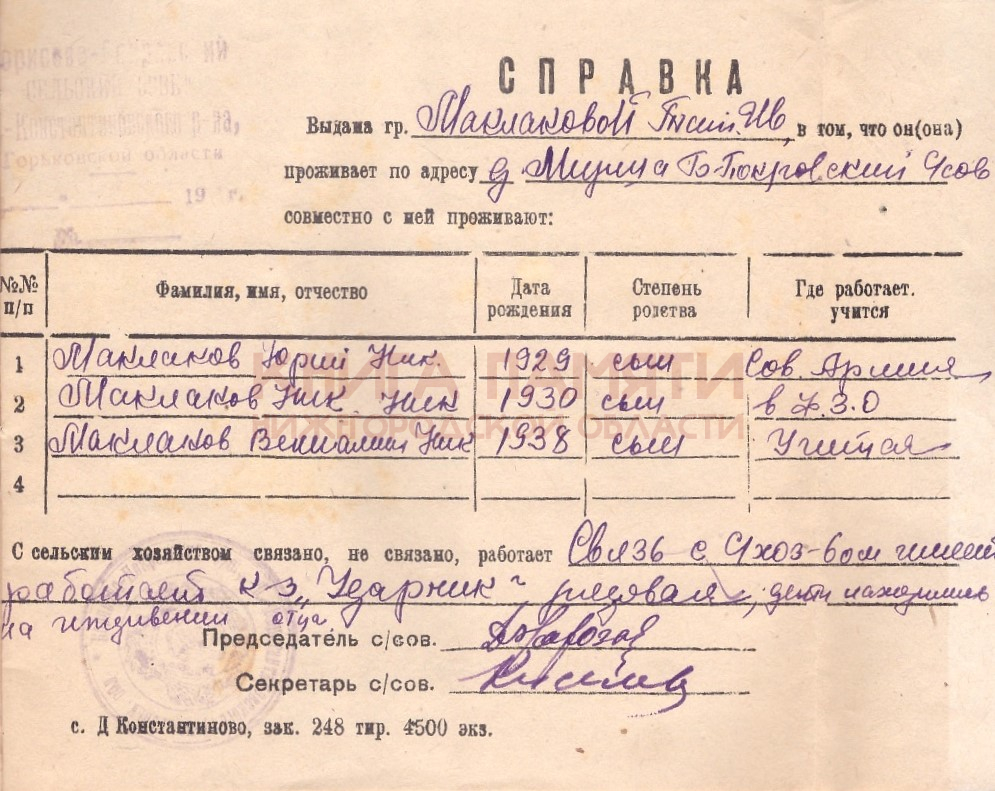 СЕЛЬСКИЙ СОВЕТ
-Константиновского р-на,
Горьковской области
19 г.
СПРАВКА
Выдана гр. Маклаковой Ив, в том, что он(она)
проживает по адресу д. Б-Покровский
совместно с ней проживают:
№№ п/п Фамилия, имя, отчество Дата рождения Степень родства Где работает. учится
1 Маклаков Юрий Ник. 1929 сын Сов. Армия
2 Маклаков Ник. Ник 1930 сын в Ф.З.О
3 Маклаков Вениамин Ник 1938 сын Учится
4
КНИГА ПАМЯТИ
НИЖНЕГОРОДСКОЙ ОБЛАСТИ
С сельским хозяйством связано, не связано, работает Связь с с/хоз-вом имеет
работает к-з „Ударник“, рядовая, дети находились
на иждевении отца
Председатель с/сов.
Секретарь с/сов.
с. Д Константиново, зак. 248 тир. 4500 экз.